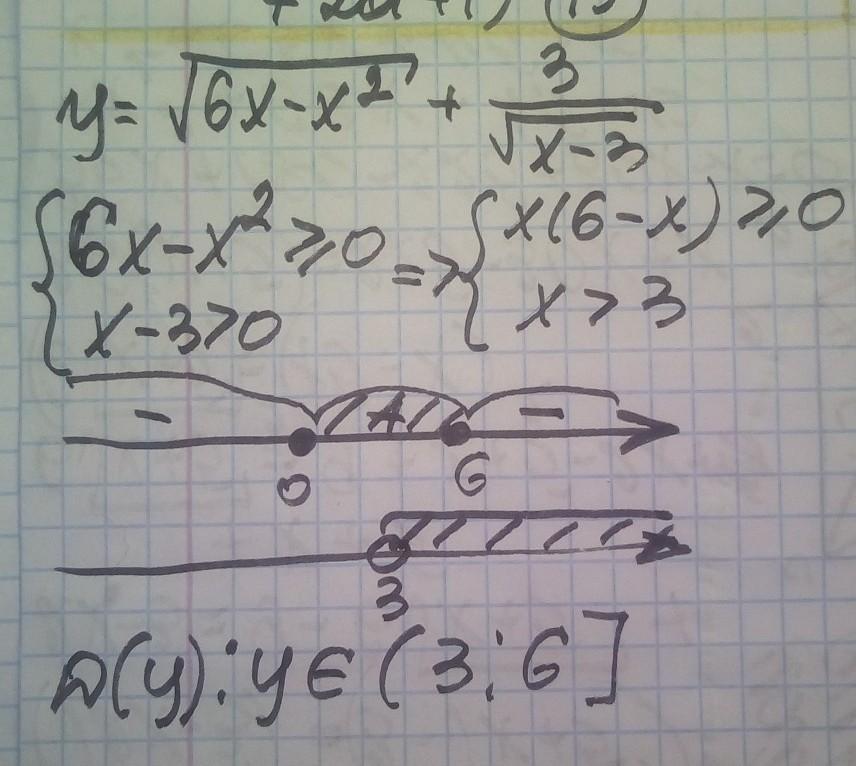 y = √(6x-x²) + 3/√(x-3)
{6x-x² ⩾ 0 => {x(6-x) ⩾ 0
x-3>0 x > 3
- + -
0 6
3
D(y): y ∈ (3; 6]